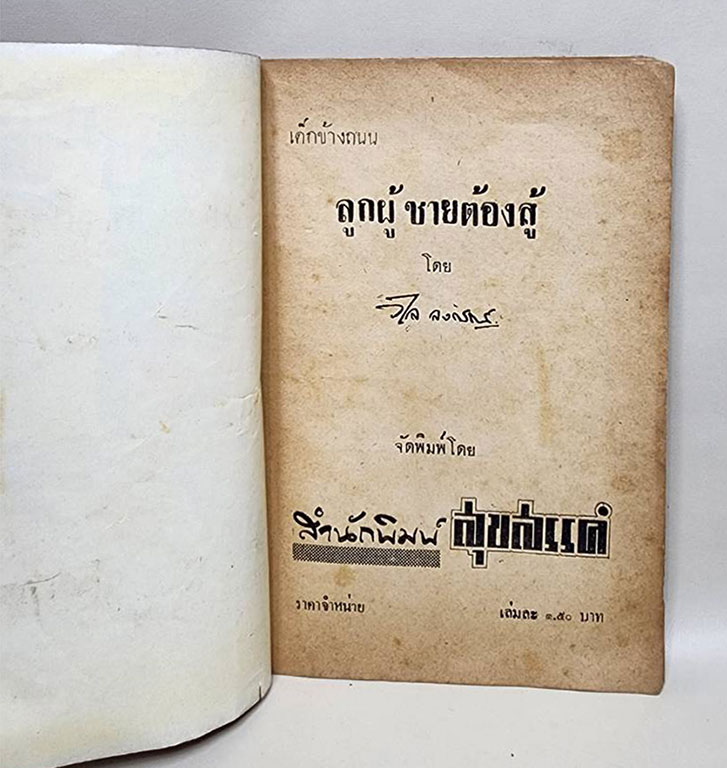 เด็กข้างถนน
ลูกผู้ชายต้องสู้
โดย
วิไล
จัดพิมพ์โดย
สำนักพิมพ์ สุขสวรรค์
ราคาจำหน่าย เล่มละ ๑.๕๐ บาท